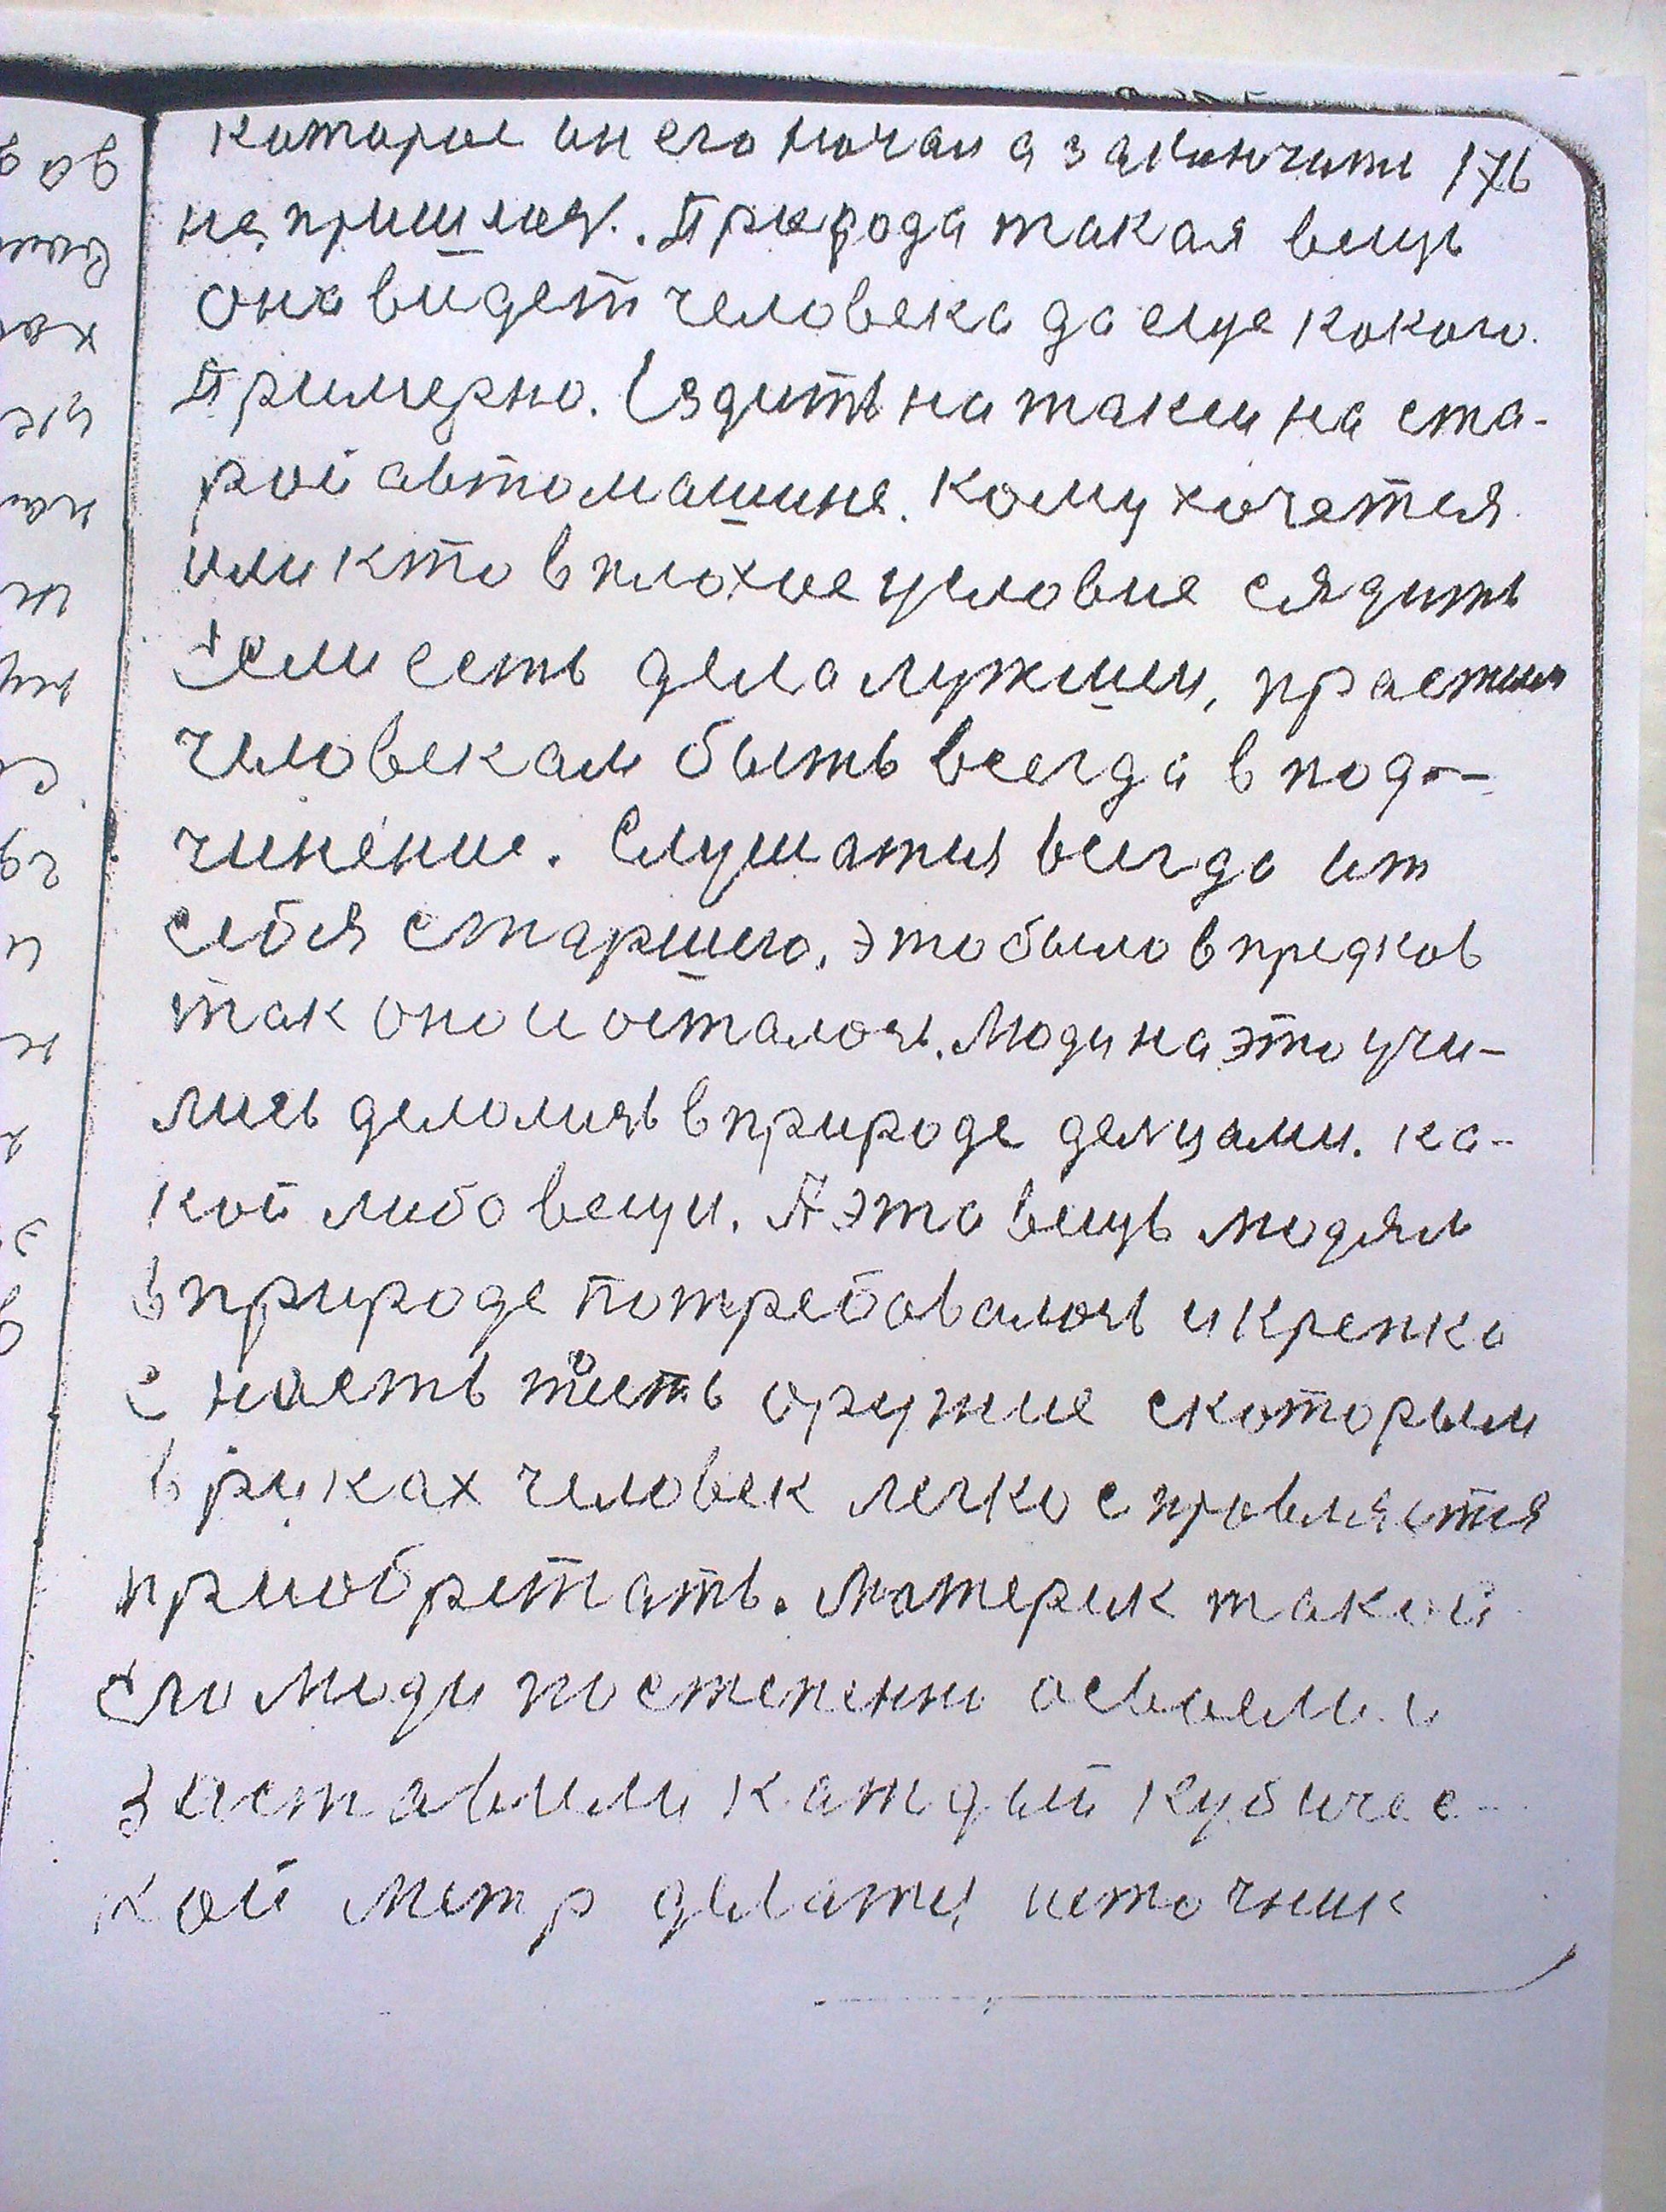 которое он его начал а закончить 176
не пришлось. Природа такая вещь
она видет человека да еще какого.
Примерно. Ездить на такси на ста-
рой автомашине. Кому хочется
или кто в плохие условие сядить
Если есть дела лужшеи, простым
человекам быть всегда в под-
чинение. Слушатия всегда от
себя старшего, это было в предков
так оно и осталось. Люди на это учи-
лись делолись в природе делцами. ка-
кой либо вещи. А эта вещь людям
в природе потребовалось и крепко
оружие с которым
в руках человек легко справляется
приобретать. Материк такой
его люди постепенно освоели и
заставили каждый кубичес-
кой метр делатся источник